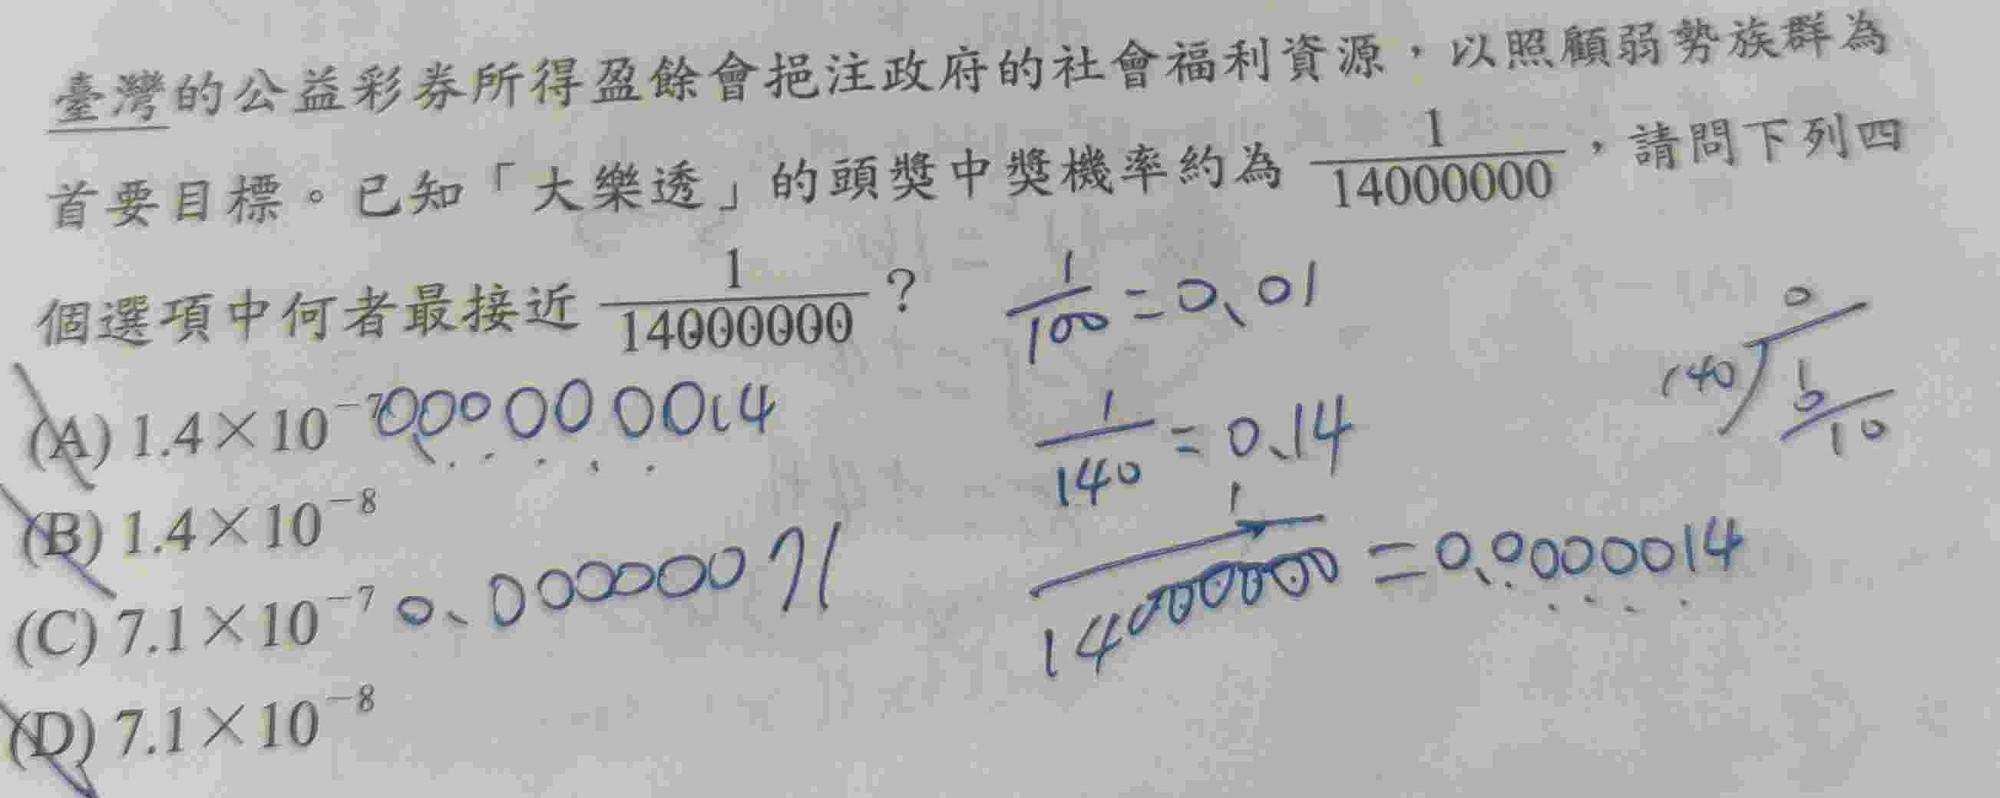 臺灣的公益彩券所得盈餘會挹注政府的社會福利資源，以照顧弱勢族群為
首要目標。已知「大樂透」的頭獎中獎機率約為 1/14000000，請問下列四
個選項中何者最接近 1/14000000？
1/100 = 0.01
(A) 1.4×10⁻⁷ 0000000014
1/140 = 0.14
140 0 1 0 10
(B) 1.4×10⁻⁸
(C) 7.1×10⁻⁷ 0.00000071
1/14000000 = 0.00000014
(D) 7.1×10⁻⁸